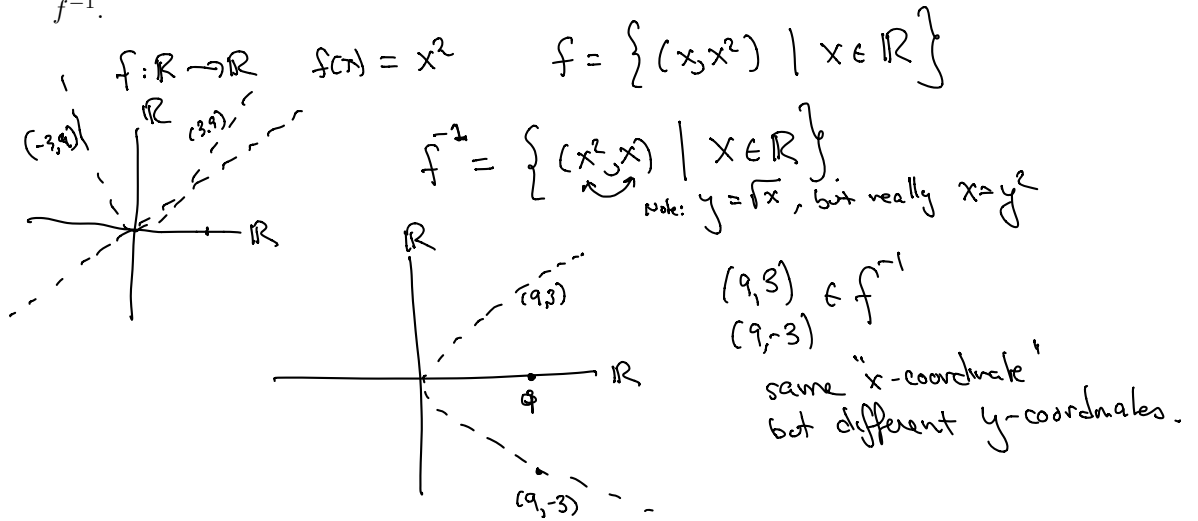 f⁻¹.
f : ℝ → ℝ   f(x) = x²   f = { (x, x²) | x ∈ ℝ }
ℝ
(-3,9)   (3,9)
ℝ
f⁻¹ = { (x², x) | x ∈ ℝ }
Note: y = √x , but really x = y²
ℝ
(9,3)
ℝ
9
(9,-3)
(9,3) ∈ f⁻¹
(9,-3)
same "x-coordinate"
but different y-coordinates.